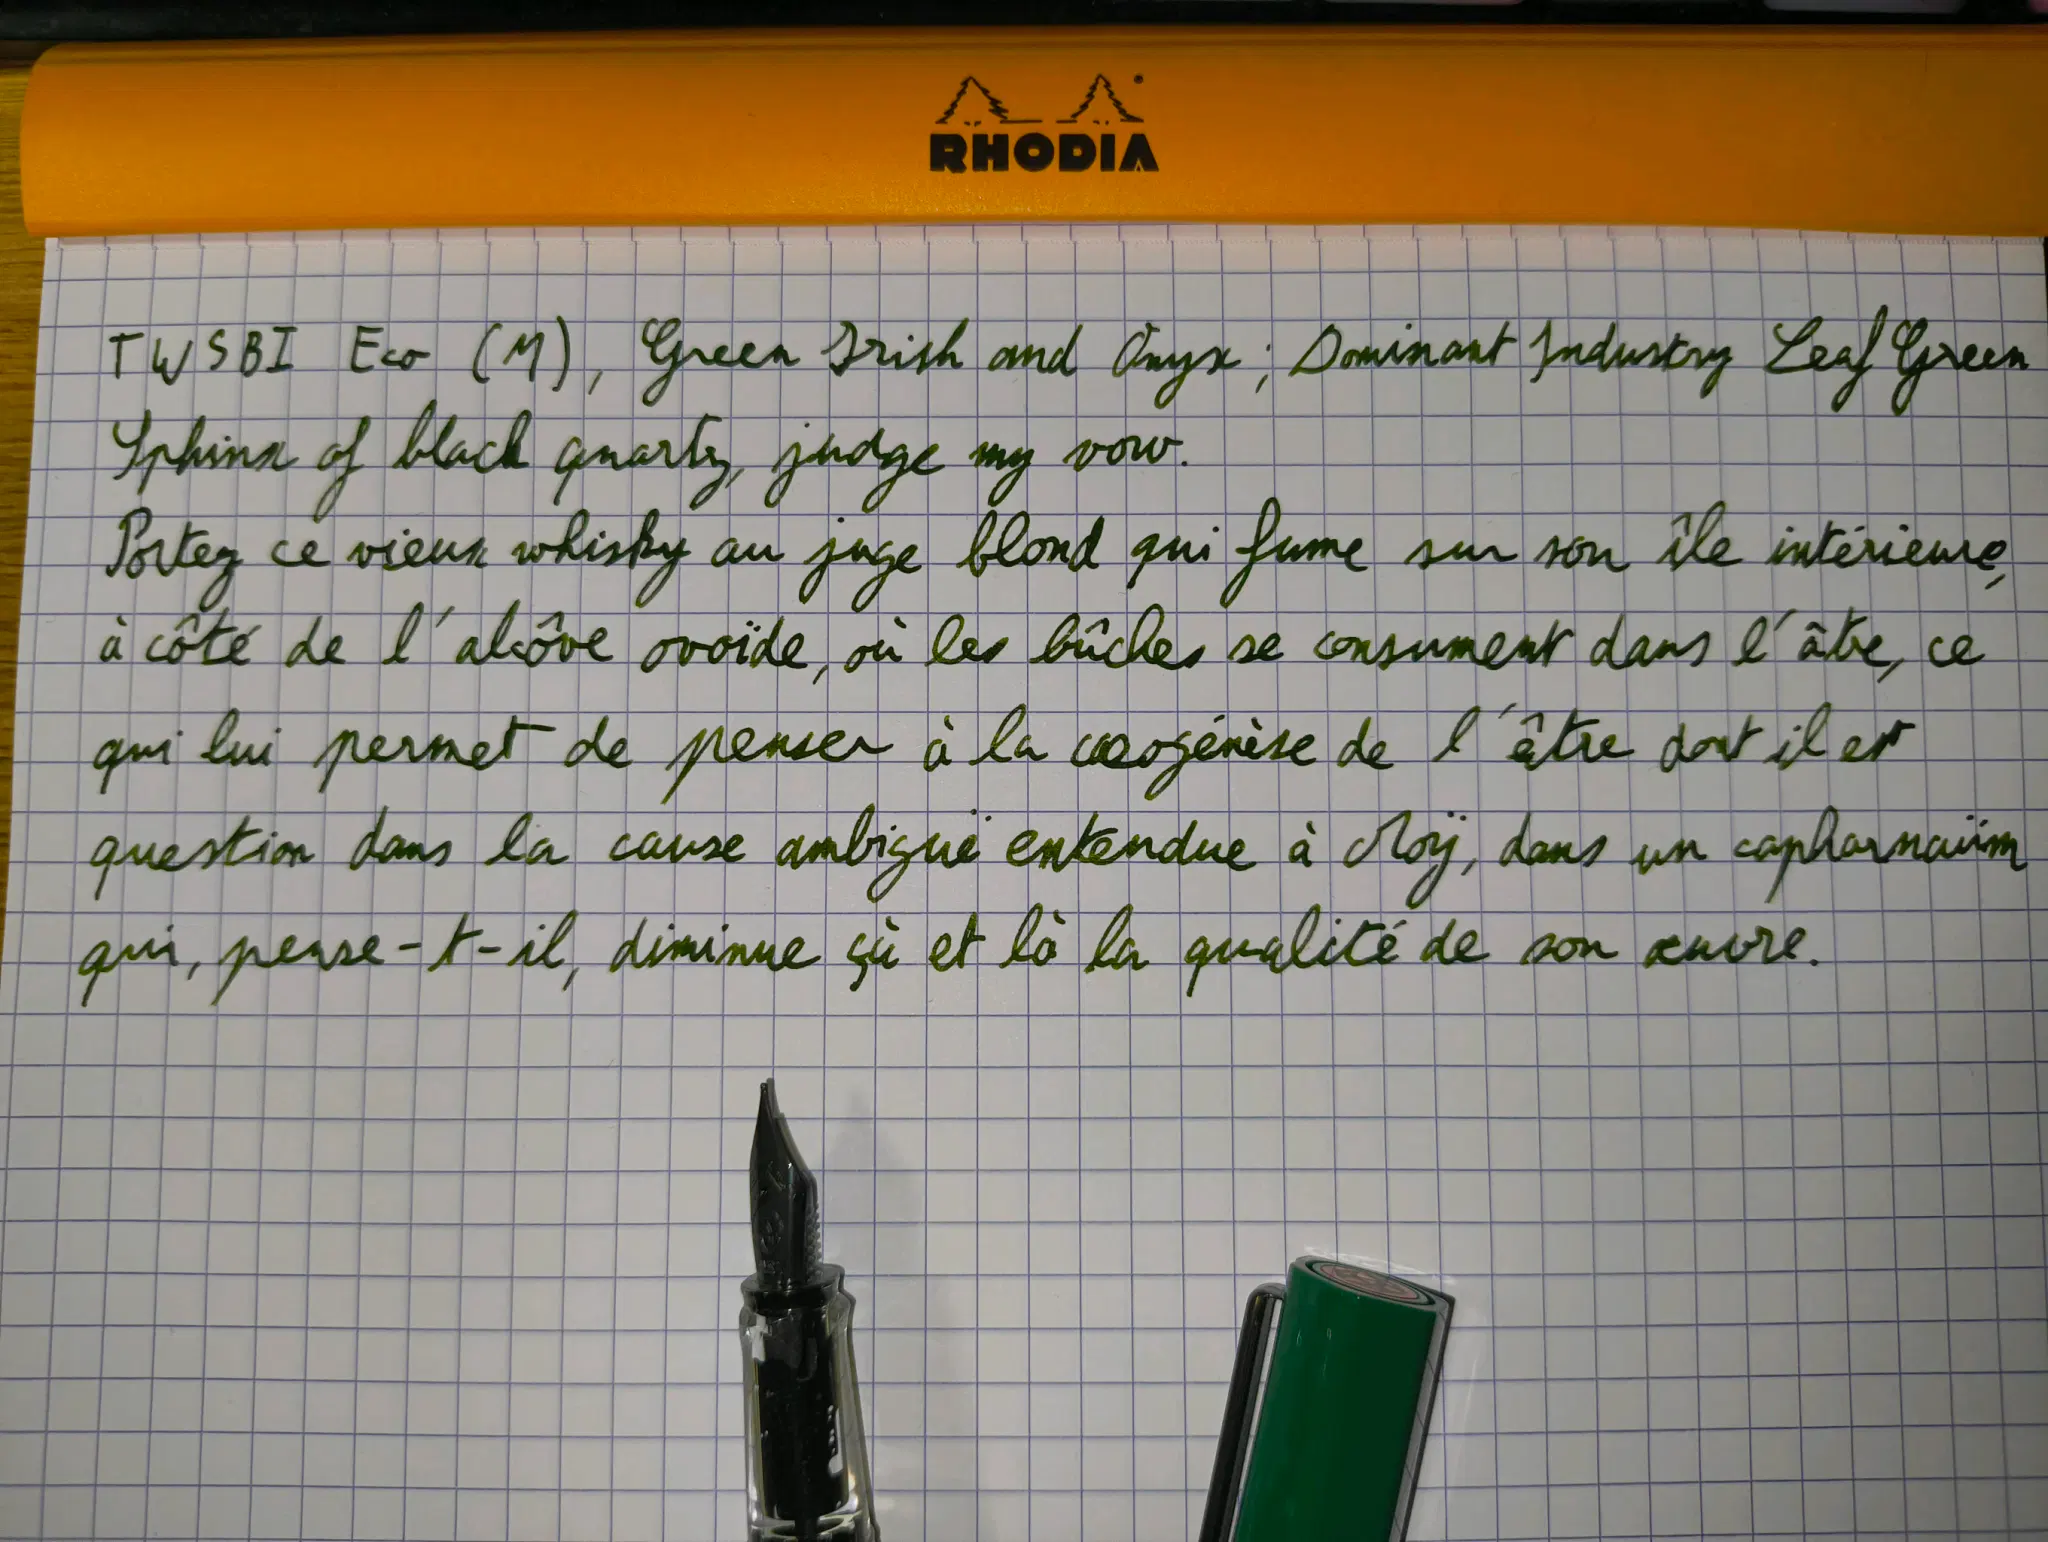 RHODIA
TWSBI Eco (M), Green Irish and Onyx ; Dominant Industry Leaf Green
Sphinx of black quartz, judge my vow.
Portez ce vieux whisky au juge blond qui fume sur son île intérieure,
à côté de l'alcôve ovoïde, où les bûches se consument dans l'âtre, ce
qui lui permet de penser à la cæogénèse de l'être dont il est
question dans la cause ambiguë entendue à Moÿ, dans un capharnaüm
qui, pense-t-il, diminue çà et là la qualité de son œuvre.